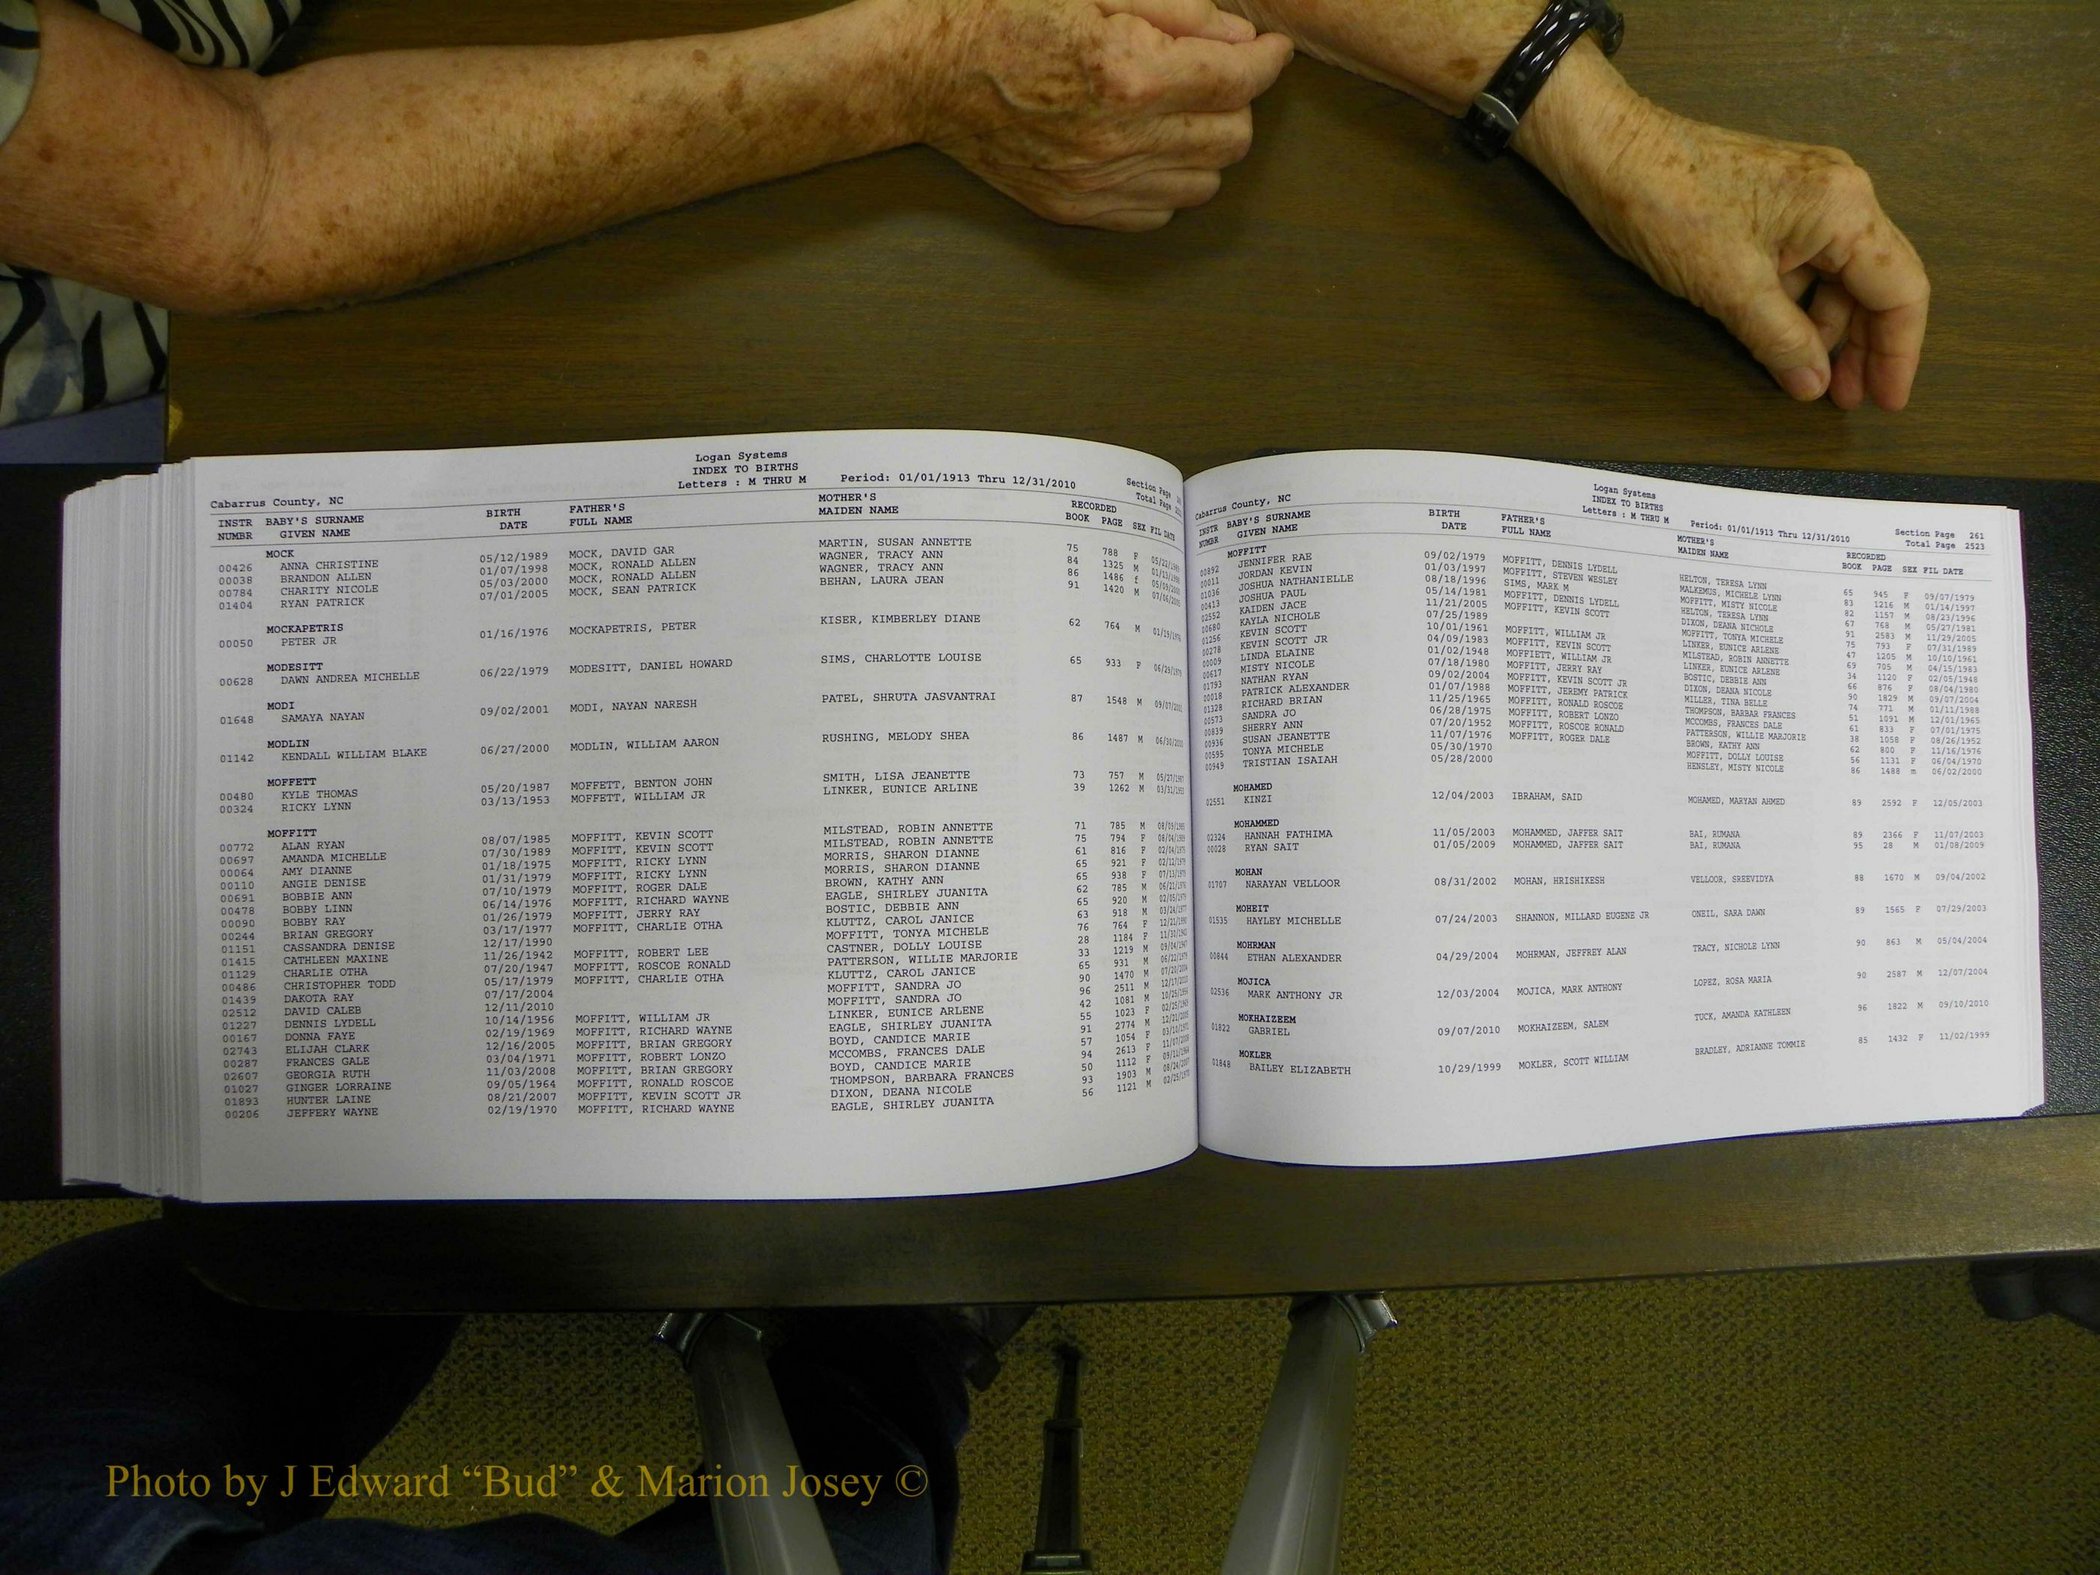 Logan Systems
INDEX TO BIRTHS
Letters : M THRU M Period: 01/01/1913 Thru 12/31/2010 Section Page
Cabarrus County, NC Total Page
INSTR BABY'S SURNAME BIRTH FATHER'S MOTHER'S RECORDED
NUMBR GIVEN NAME DATE FULL NAME MAIDEN NAME BOOK PAGE SEX FIL DATE
MOCK
00426 ANNA CHRISTINE 05/12/1989 MOCK, DAVID GAR MARTIN, SUSAN ANNETTE 75 788 F
00038 BRANDON ALLEN 01/07/1998 MOCK, RONALD ALLEN WAGNER, TRACY ANN 84 1325 M 01/13/1998
00784 CHARITY NICOLE 05/03/2000 MOCK, RONALD ALLEN WAGNER, TRACY ANN 86 1486 f
01404 RYAN PATRICK 07/01/2005 MOCK, SEAN PATRICK BEHAN, LAURA JEAN 91 1420 M
MOCKAPETRIS
00050 PETER JR 01/16/1976 MOCKAPETRIS, PETER KISER, KIMBERLEY DIANE 62 764 M 01/19/1976
MODESITT
00628 DAWN ANDREA MICHELLE 06/22/1979 MODESITT, DANIEL HOWARD SIMS, CHARLOTTE LOUISE 65 933 F 06/29/1979
MODI
01648 SAMAYA NAYAN 09/02/2001 MODI, NAYAN NARESH PATEL, SHRUTA JASVANTRAI 87 1548 M
MODLIN
01142 KENDALL WILLIAM BLAKE 06/27/2000 MODLIN, WILLIAM AARON RUSHING, MELODY SHEA 86 1487 M 06/30/2000
MOFFETT
00480 KYLE THOMAS 05/20/1987 MOFFETT, BENTON JOHN SMITH, LISA JEANETTE 73 757 M 05/27/1987
00324 RICKY LYNN 03/13/1953 MOFFETT, WILLIAM JR LINKER, EUNICE ARLINE 39 1262 M 03/31/1953
MOFFITT
00772 ALAN RYAN 08/07/1985 MOFFITT, KEVIN SCOTT MILSTEAD, ROBIN ANNETTE 71 785 M
00697 AMANDA MICHELLE 07/30/1989 MOFFITT, KEVIN SCOTT MILSTEAD, ROBIN ANNETTE 75 794 F
00064 AMY DIANNE 01/18/1975 MOFFITT, RICKY LYNN MORRIS, SHARON DIANNE 61 816 F
00110 ANGIE DENISE 01/31/1979 MOFFITT, RICKY LYNN MORRIS, SHARON DIANNE 65 921 F
00691 BOBBIE ANN 07/10/1979 MOFFITT, ROGER DALE BROWN, KATHY ANN 65 938 F
00478 BOBBY LINN 06/14/1976 MOFFITT, RICHARD WAYNE EAGLE, SHIRLEY JUANITA 62 785 M
00090 BOBBY RAY 01/26/1979 MOFFITT, JERRY RAY BOSTIC, DEBBIE ANN 65 920 M
00244 BRIAN GREGORY 03/17/1977 MOFFITT, CHARLIE OTHA KLUTTZ, CAROL JANICE 63 918 M
01151 CASSANDRA DENISE 12/17/1990 MOFFITT, TONYA MICHELE 76 764 F
01415 CATHLEEN MAXINE 11/26/1942 MOFFITT, ROBERT LEE CASTNER, DOLLY LOUISE 28 1184 F
01129 CHARLIE OTHA 07/20/1947 MOFFITT, ROSCOE RONALD PATTERSON, WILLIE MARJORIE 33 1219 M
00486 CHRISTOPHER TODD 05/17/1979 MOFFITT, CHARLIE OTHA KLUTTZ, CAROL JANICE 65 931 M
01439 DAKOTA RAY 07/17/2004 MOFFITT, SANDRA JO 90 1470 M
02512 DAVID CALEB 12/11/2010 MOFFITT, SANDRA JO 96 2511 M
01227 DENNIS LYDELL 10/14/1956 MOFFITT, WILLIAM JR LINKER, EUNICE ARLENE 42 1081 M
00167 DONNA FAYE 02/19/1969 MOFFITT, RICHARD WAYNE EAGLE, SHIRLEY JUANITA 55 1023 F
02743 ELIJAH CLARK 12/16/2005 MOFFITT, BRIAN GREGORY BOYD, CANDICE MARIE 91 2774 M
00287 FRANCES GALE 03/04/1971 MOFFITT, ROBERT LONZO MCCOMBS, FRANCES DALE 57 1054 F
02607 GEORGIA RUTH 11/03/2008 MOFFITT, BRIAN GREGORY BOYD, CANDICE MARIE 94 2613 F
01027 GINGER LORRAINE 09/05/1964 MOFFITT, RONALD ROSCOE THOMPSON, BARBARA FRANCES 50 1112 F
01893 HUNTER LAINE 08/21/2007 MOFFITT, KEVIN SCOTT JR DIXON, DEANA NICOLE 93 1903 M
00206 JEFFERY WAYNE 02/19/1970 MOFFITT, RICHARD WAYNE EAGLE, SHIRLEY JUANITA 56 1121 M
Logan Systems
INDEX TO BIRTHS
Letters : M THRU M Period: 01/01/1913 Thru 12/31/2010 Section Page 261
Cabarrus County, NC Total Page 2523
INSTR BABY'S SURNAME BIRTH FATHER'S MOTHER'S RECORDED
NUMBR GIVEN NAME DATE FULL NAME MAIDEN NAME BOOK PAGE SEX FIL DATE
MOFFITT
00892 JENNIFER RAE 09/02/1979 MOFFITT, DENNIS LYDELL HELTON, TERESA LYNN 65 945 F 09/07/1979
00011 JORDAN KEVIN 01/03/1997 MOFFITT, STEVEN WESLEY MALKEMUS, MICHELE LYNN 83 1216 M 01/14/1997
01036 JOSHUA NATHANIELLE 08/18/1996 SIMS, MARK M MOFFITT, MISTY NICOLE 82 1157 M 08/23/1996
00413 JOSHUA PAUL 05/14/1981 MOFFITT, DENNIS LYDELL HELTON, TERESA LYNN 67 768 M 05/27/1981
02552 KAIDEN JACE 11/21/2005 MOFFITT, KEVIN SCOTT DIXON, DEANA NICHOLE 91 2583 M 11/29/2005
00680 KAYLA NICHOLE 07/25/1989 MOFFITT, TONYA MICHELE 75 793 F 07/31/1989
01256 KEVIN SCOTT 10/01/1961 MOFFITT, WILLIAM JR LINKER, EUNICE ARLENE 47 1205 M 10/10/1961
00278 KEVIN SCOTT JR 04/09/1983 MOFFITT, KEVIN SCOTT MILSTEAD, ROBIN ANNETTE 69 705 M 04/15/1983
00009 LINDA ELAINE 01/02/1948 MOFFIETT, WILLIAM JR LINKER, EUNICE ARLENE 34 1120 F 02/05/1948
00617 MISTY NICOLE 07/18/1980 MOFFITT, JERRY RAY BOSTIC, DEBBIE ANN 66 876 F 08/04/1980
01793 NATHAN RYAN 09/02/2004 MOFFITT, KEVIN SCOTT JR DIXON, DEANA NICOLE 90 1829 M 09/07/2004
00018 PATRICK ALEXANDER 01/07/1988 MOFFITT, JEREMY PATRICK MILLER, TINA BELLE 74 771 M 01/11/1988
01328 RICHARD BRIAN 11/25/1965 MOFFITT, RONALD ROSCOE THOMPSON, BARBAR FRANCES 51 1091 M 12/01/1965
00573 SANDRA JO 06/28/1975 MOFFITT, ROBERT LONZO MCCOMBS, FRANCES DALE 61 833 F 07/01/1975
00839 SHERRY ANN 07/20/1952 MOFFITT, ROSCOE RONALD PATTERSON, WILLIE MARJORIE 38 1058 F 08/26/1952
00936 SUSAN JEANETTE 11/07/1976 MOFFITT, ROGER DALE BROWN, KATHY ANN 62 800 F 11/16/1976
00595 TONYA MICHELE 05/30/1970 MOFFITT, DOLLY LOUISE 56 1131 F 06/04/1970
00949 TRISTIAN ISAIAH 05/28/2000 HENSLEY, MISTY NICOLE 86 1488 m 06/02/2000
MOHAMED
02551 KINZI 12/04/2003 IBRAHAM, SAID MOHAMED, MARYAN AHMED 89 2592 F 12/05/2003
MOHAMMED
02324 HANNAH FATHIMA 11/05/2003 MOHAMMED, JAFFER SAIT BAI, RUMANA 89 2366 F 11/07/2003
00028 RYAN SAIT 01/05/2009 MOHAMMED, JAFFER SAIT BAI, RUMANA 95 28 M 01/08/2009
MOHAN
01707 NARAYAN VELLOOR 08/31/2002 MOHAN, HRISHIKESH VELLOOR, SREEVIDYA 88 1670 M 09/04/2002
MOHEIT
01535 HAYLEY MICHELLE 07/24/2003 SHANNON, MILLARD EUGENE JR ONEIL, SARA DAWN 89 1565 F 07/29/2003
MOHRMAN
00844 ETHAN ALEXANDER 04/29/2004 MOHRMAN, JEFFREY ALAN TRACY, NICHOLE LYNN 90 863 M 05/04/2004
MOJICA
02536 MARK ANTHONY JR 12/03/2004 MOJICA, MARK ANTHONY LOPEZ, ROSA MARIA 90 2587 M 12/07/2004
MOKHAIZEEM
01822 GABRIEL 09/07/2010 MOKHAIZEEM, SALEM TUCK, AMANDA KATHLEEN 96 1822 M 09/10/2010
MOKLER
01848 BAILEY ELIZABETH 10/29/1999 MOKLER, SCOTT WILLIAM BRADLEY, ADRIANNE TOMMIE 85 1432 F 11/02/1999
Photo by J Edward “Bud” & Marion Josey ©